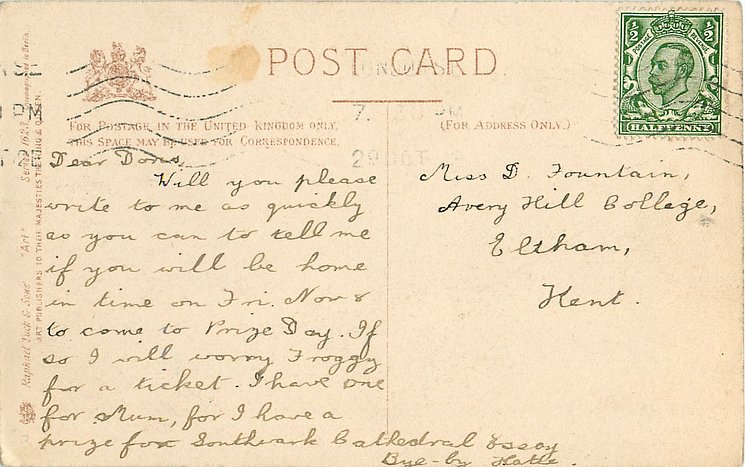 POST CARD
FOR POSTAGE IN THE UNITED KINGDOM ONLY,
THIS SPACE MAY BE USED FOR CORRESPONDENCE.
(FOR ADDRESS ONLY.)
1/2 1/2
POSTAGE REVENUE
HALFPENNY
PM
29 OCT
Raphael Tuck & Sons' "Art"
ART PUBLISHERS TO THEIR MAJESTIES THE KING & QUEEN.
Dear Doris,
Will you please
write to me as quickly
as you can to tell me
if you will be home
in time on Fri. Nov 8
to come to Prize Day. If
so I will worry Froggy
for a ticket. I have one
for Mum, for I have a
prize for Southwark Cathedral Essay
Bye-by
Miss D. Fountain,
Avery Hill College,
Eltham,
Kent.